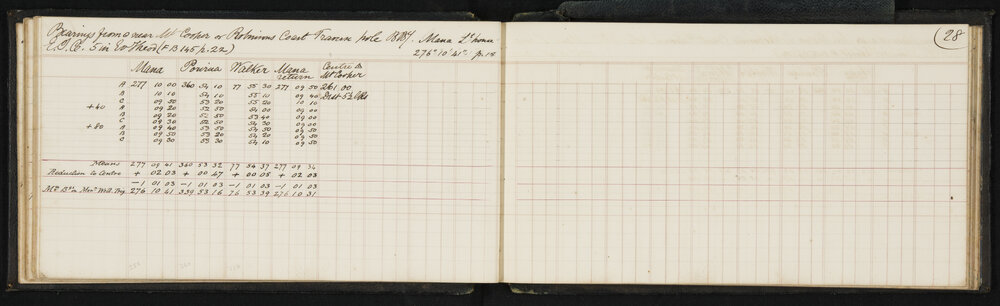 Bearings from a near Mt Cooper or Robinsons Coast Traverse pole BBY Mana Lt house
E.D.C. 5 in Ev Theod (F B 145 p. 22) 276° 10' 41" p. 18
(28)
Mana Powrua Walker Mana return Centre is Mt Cooper
A 277 10 00 360 54 10 77 55 30 277 09 50 261 00
B 10 10 54 10 55 10 09 40 Dist 5½ lks
C 09 50 53 20 55 20 10 10
+40 A 09 20 52 50 54 00 09 00
B 09 20 52 50 53 40 09 00
C 09 30 52 50 54 30 09 00
+80 A 09 40 53 50 54 50 09 50
B 09 50 53 20 54 20 09 50
C 09 30 53 30 54 10 09 50
Means 277 09 41 360 53 32 77 54 37 277 09 34
Reduction to Centre + 02 03 + 00 47 + 00 05 + 02 03
-1 01 03 -1 01 03 -1 01 03 -1 01 03
Mt Bgs in Mern Well. Trig 276 10 41 339 53 16 76 53 39 276 10 31